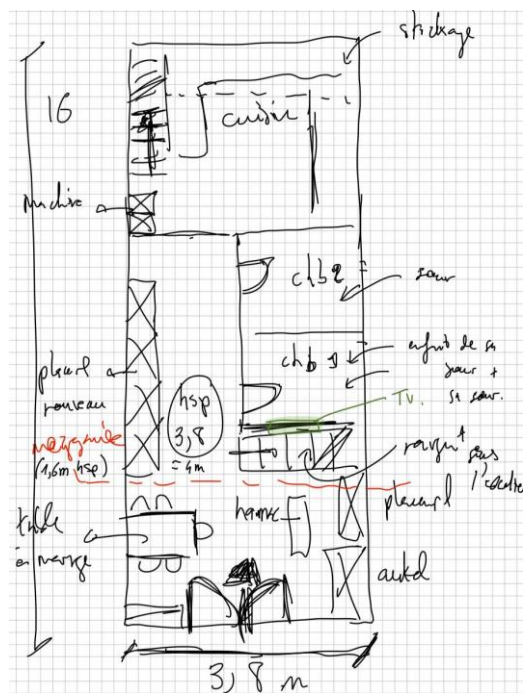 stockage
16
cuisine
machine
chb 2
sœur
chb 1
enfant de sa
sœur +
sa sœur.
TV.
placard
nouveau
hsp
3,8
= 4m
mezzanine
(1,6m hsp)
rangt sous
l'escalier
placard
table
à manger
hamac
autel
3,8 m